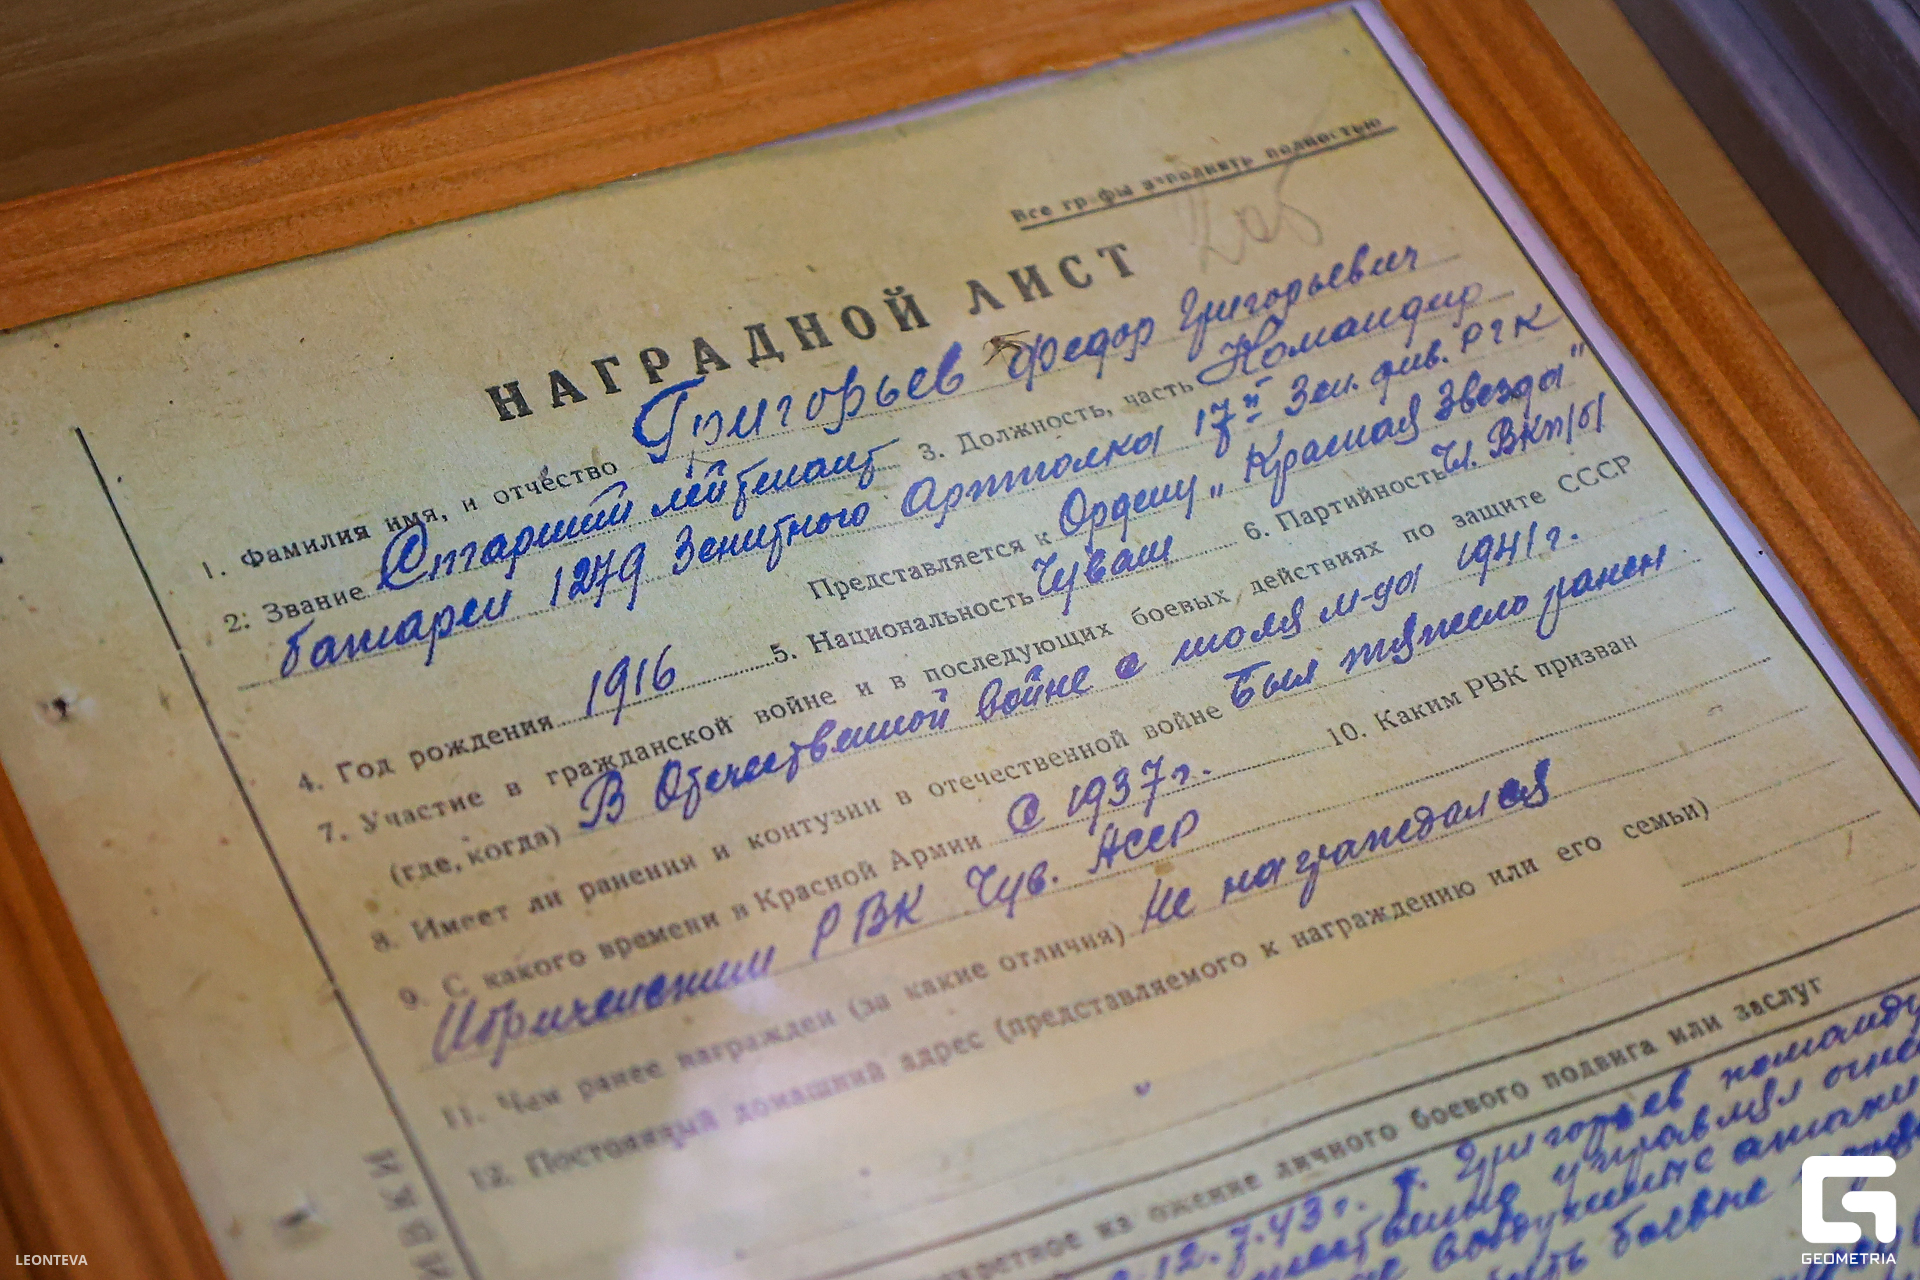 Все гр фы заполнять полностью
НАГРАДНОЙ ЛИСТ
1. Фамилия имя, и отчество Григорьев Федор Григорьевич
2: Звание Старший лейтенант 3. Должность, часть Командир
батареи 1279 Зенитного Артполка 17й Зен. див. РГК
Представляется к Ордену „Красная Звезда"
4. Год рождения 1916 5. Национальность Чуваш 6. Партийность Чл. ВКП/б/
7. Участие в гражданской войне и в последующих боевых действиях по защите СССР
(где, когда) В Отечественной войне с июля м-ца 1941 г.
8. Имеет ли ранения и контузии в отечественной войне Был тяжело ранен
9. С какого времени в Красной Армии С 1937 г. 10. Каким РВК призван
Ибрический РВК Чув. АССР
11. Чем ранее награжден (за какие отличия) Не награждался
12. Постоянный домашний адрес (представляемого к награждению или его семьи)
ожение личного боевого подвига или заслуг
12.7.43 г. т. Григорьев
управлял
боевые
LEONTEVA
GEOMETRIA